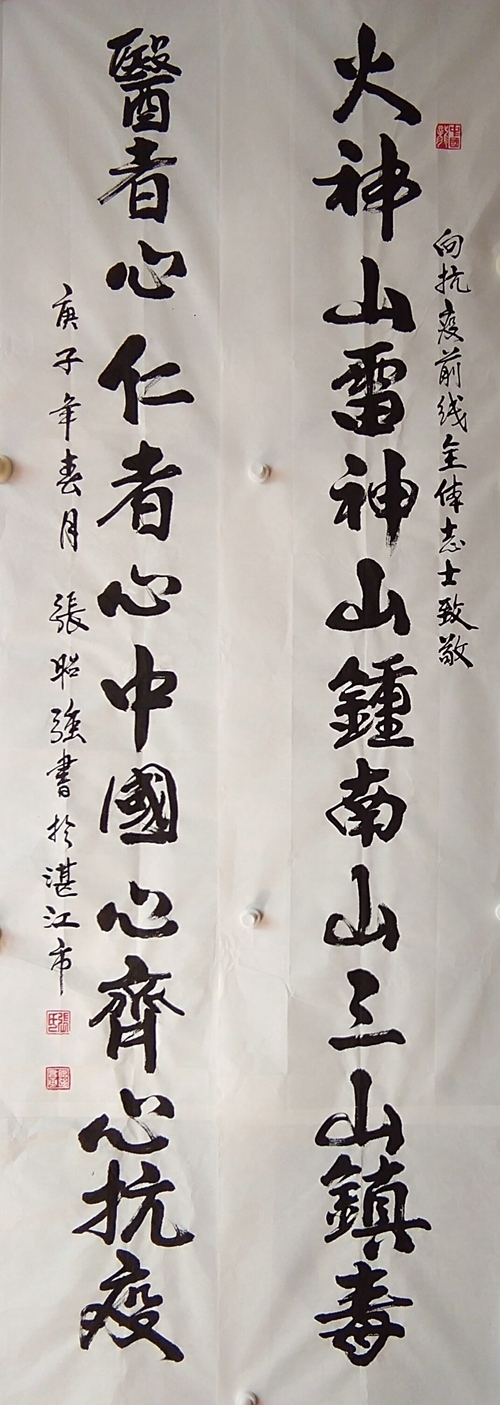 向抗疫前线全体志士致敬
火神山雷神山鍾南山三山鎮毒
醫者心仁者心中國心齊心抗疫
庚子年春月 張昭强書於湛江市